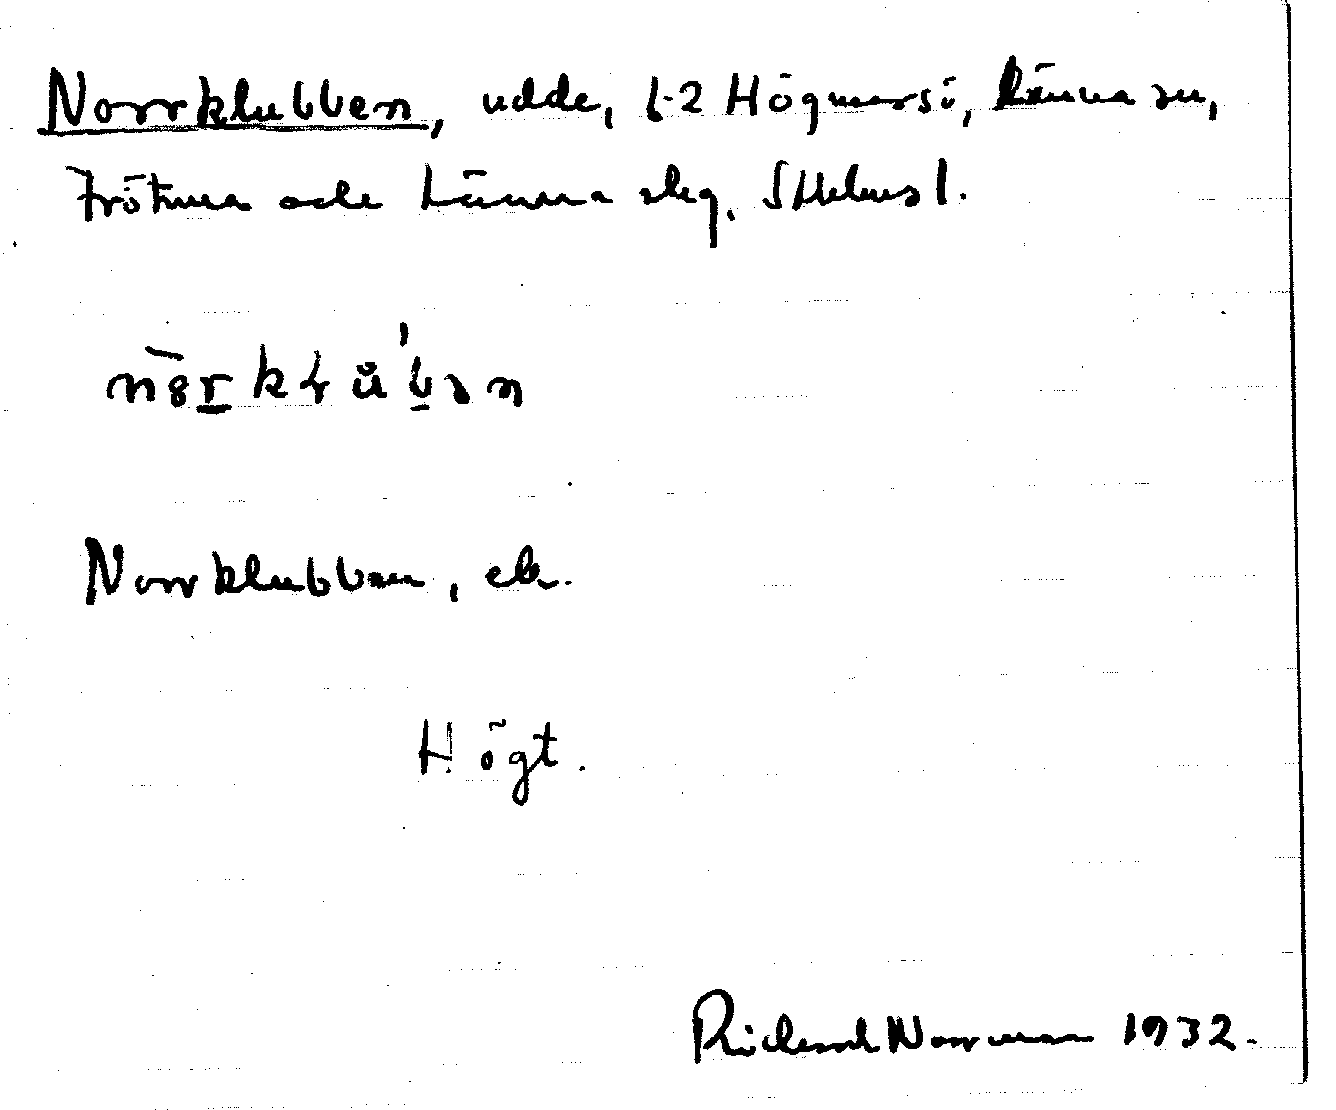 Norrklubben, udde, 1-2 Högmarsö, Länna sn,
Frötuna och Länna skg. Sthlms l.
Norrklubben, ek.
Högt.
Richard Norrman 1932.